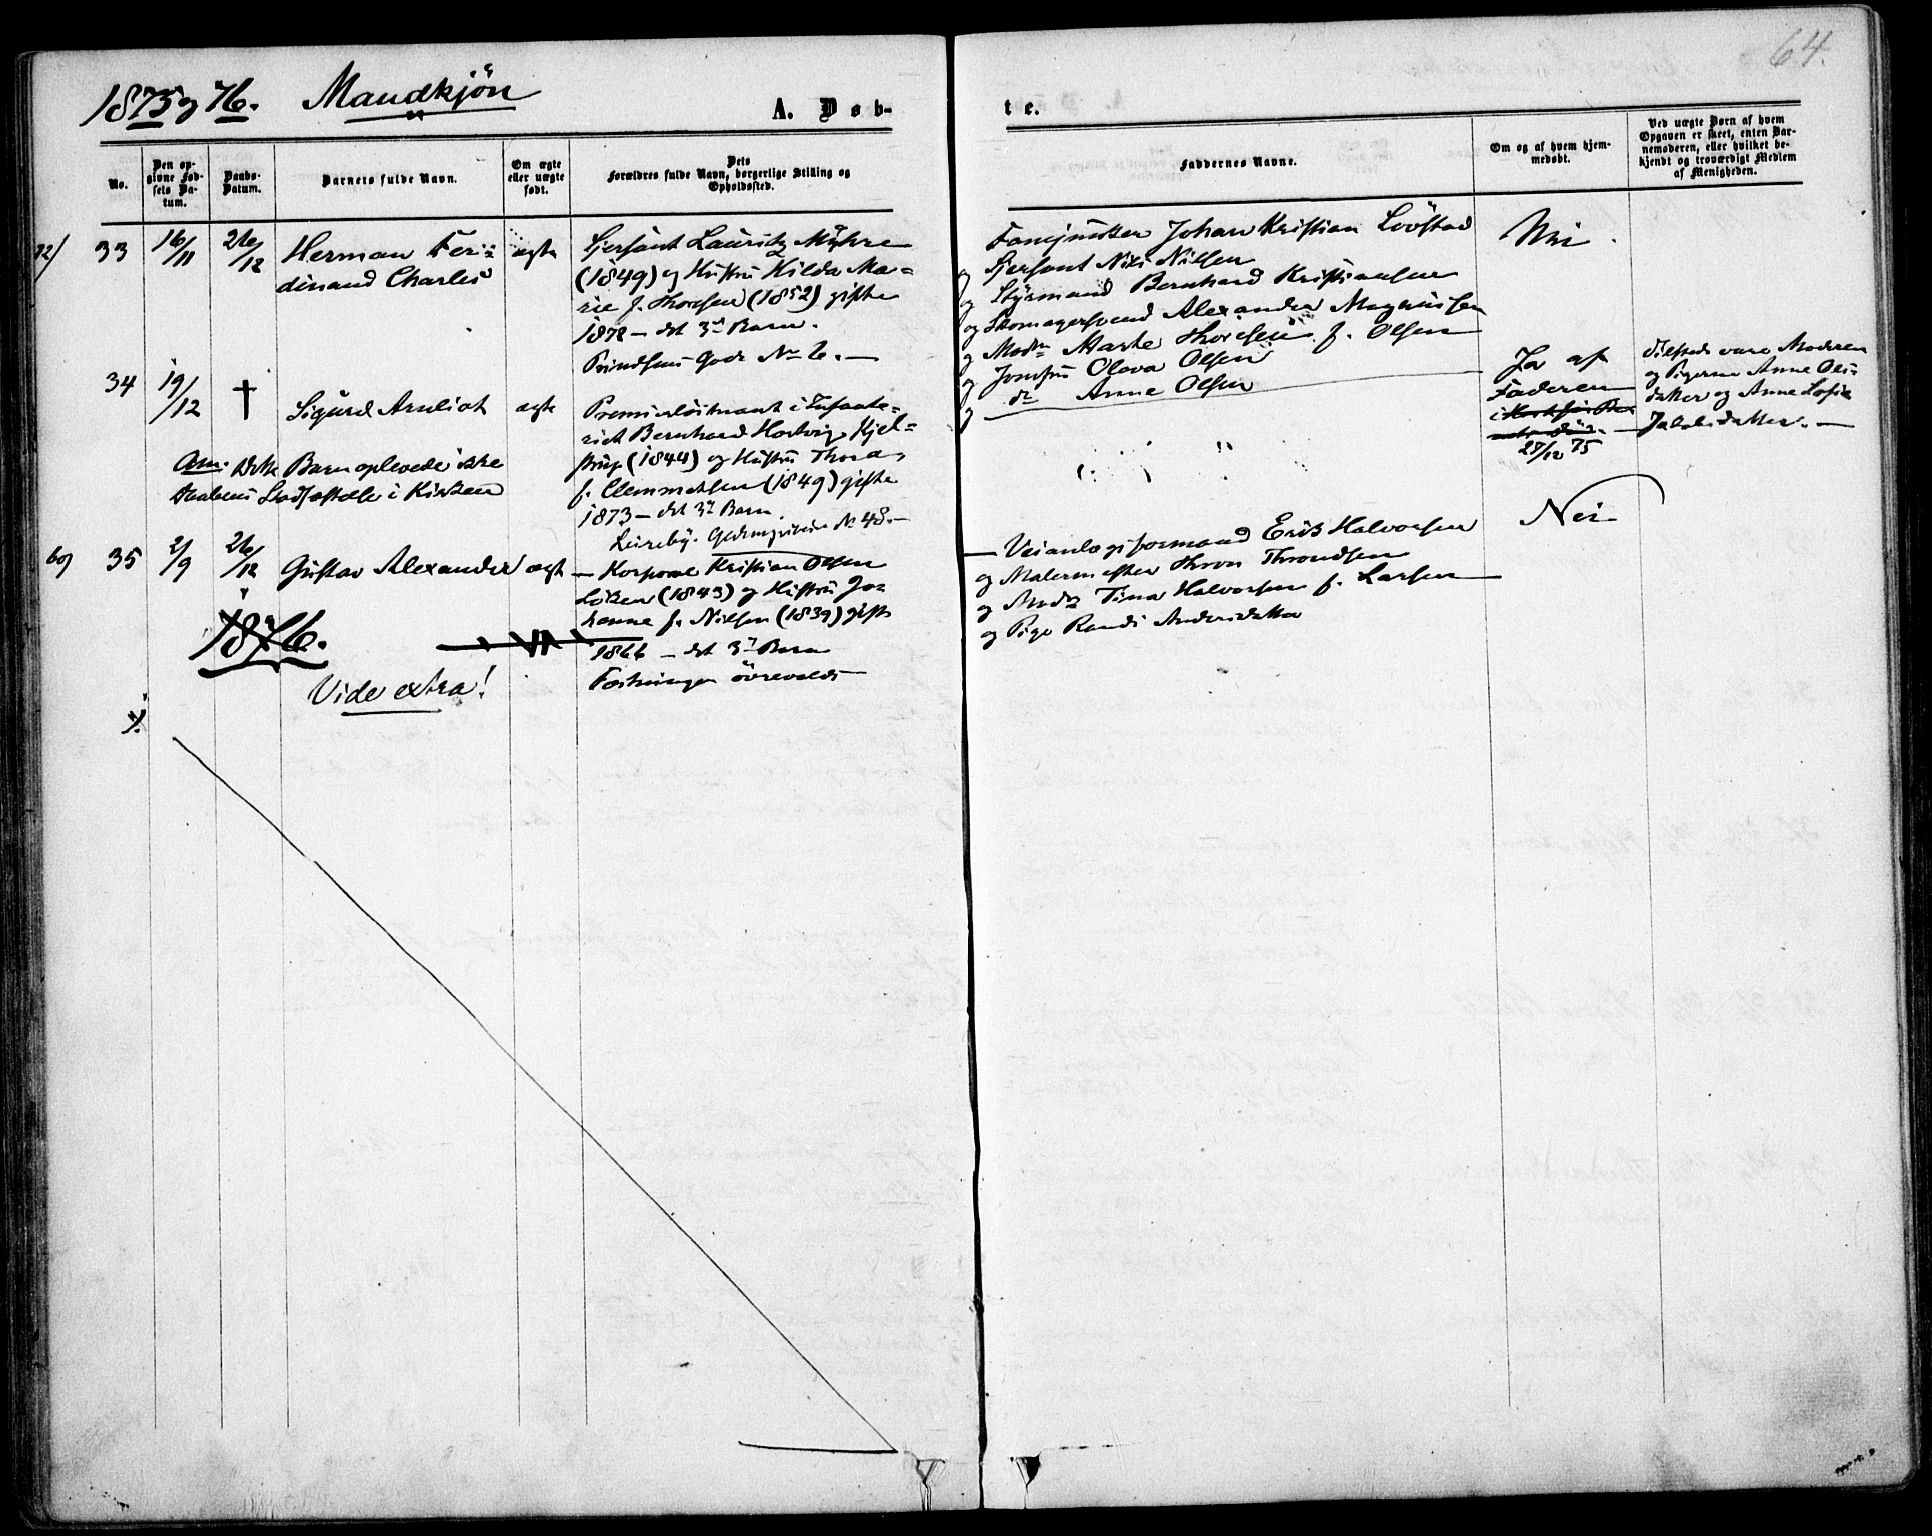 64.
1875 og 76. Mandkjön
A. Døb-
te.
No.
Den op-
givne Fød-
sels Da-
tum.
Daabs-
Datum.
Barnets fulde Navn.
Om ægte
eller uægte
født.
Dets
Forældres fulde Navn, borgerlige Stilling og
Opholdssted.
Faddernes Navne.
Om og af hvem hjem-
medøbt.
Ved uægte Børn af hvem
Opgaven er skeet, enten Bar-
nemoderen, eller hvilket be-
kjendt og troværdigt Medlem
af Menigheden.
33 16/11 26/12
Herman Fer-
dinand Charles
ægte
Sjersant Lauritz Myhre
(1849) og Hustru Hilda Ma-
rie f. Thoresen (1852) gifte
1872 – det 3die Barn.
Prindsens Gade No 6. –
Johan Kristian Lövstad
og Sjersant Nils Nilsen
og Styrmand Bernhard Kristiansen
og Skomagersvend Alexander Magnussen
og Madm Marte Thoresen f. Olsen
og Jomfru Olava Olsen
og do Anne Olsen
Nei.
34 19/12 †
Sigurd Arnliot
ægte
Premierløitnant i Infante-
riet Bernhard Hartvig Kjel-
strup (1844) og Hustru Thora,
f. Clemmetsen (1849) gifte
1873 – det 3die Barn.
No 48. –
Anm. Dette Barn oplevede ikke
Daabens Stadfæstelse i Kirken
Ja af
Faderen
27/12 75
Tilstede vare Moderen
og Pigerne Anne Ols-
datter og Anne Sofie
Jakobsdatter. –
35 2/9 26/12
Gustav Alexander
ægte
– Korporal Kristian Olsen
Löken (1843) og Hustru Jo-
hanne f. Nilsen (1839) gifte
1866 – det 3die Barn
Fæstningen övrevold
– Veianlægsformand Erik Halvorsen
og Malermester Thron Throndsen
og Madm Tina Halvorsen f. Larsen
og Pige Randi Andersdatter
Nei
1876.
Vide extra!